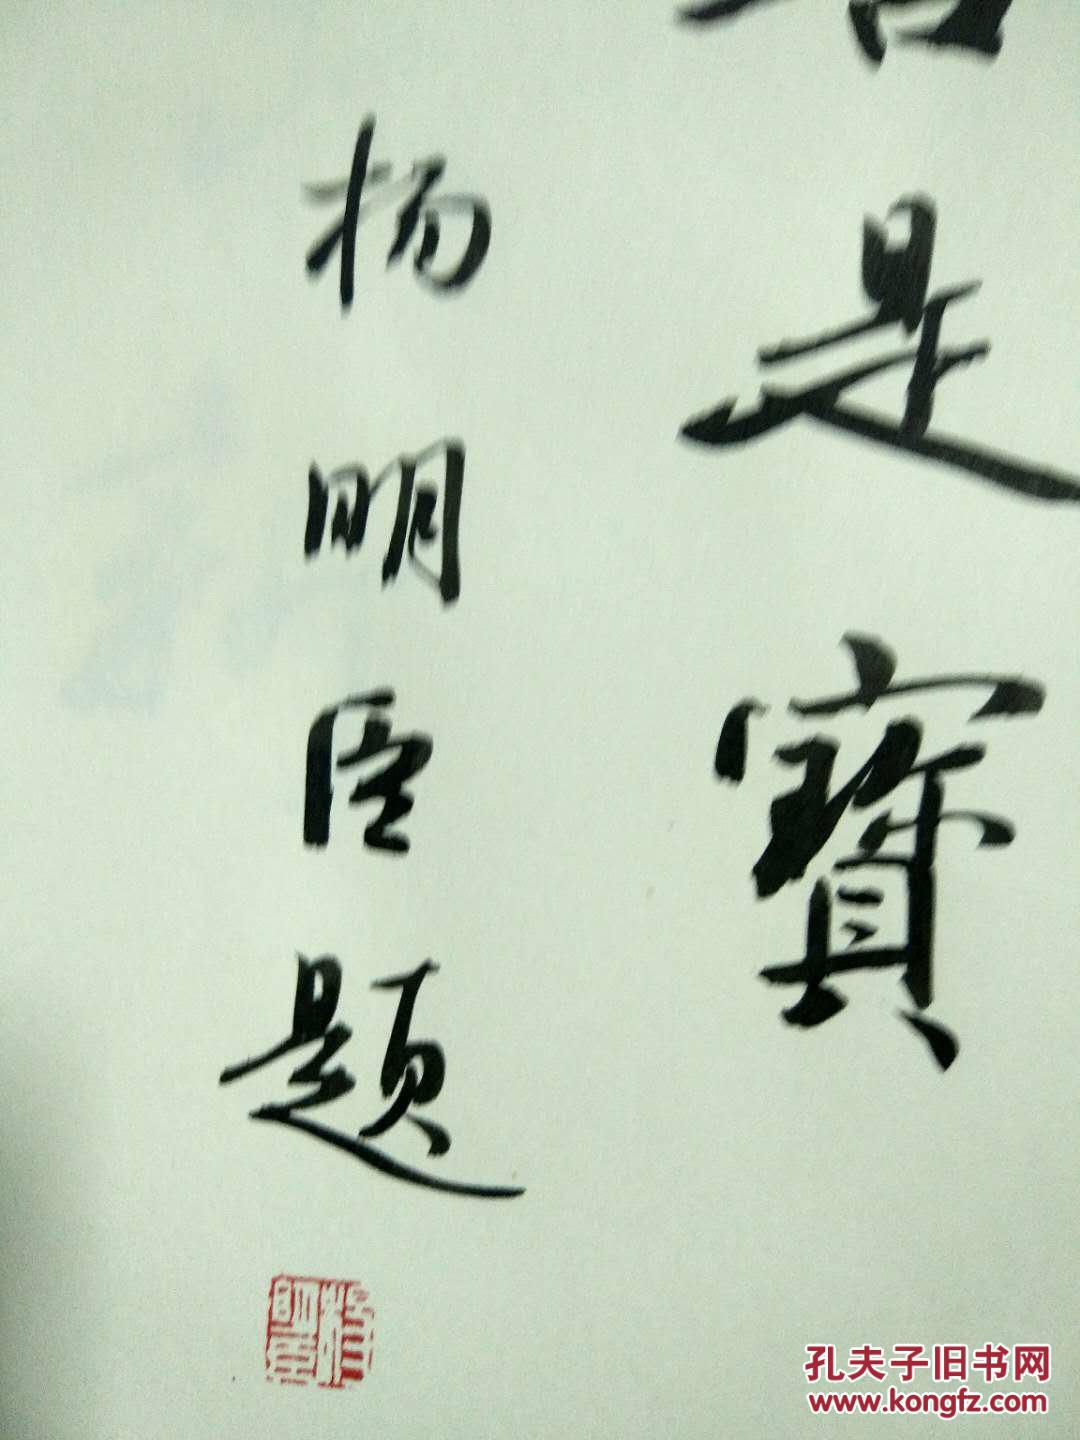 是寶
杨明臣题
孔夫子旧书网
www.kongfz.com